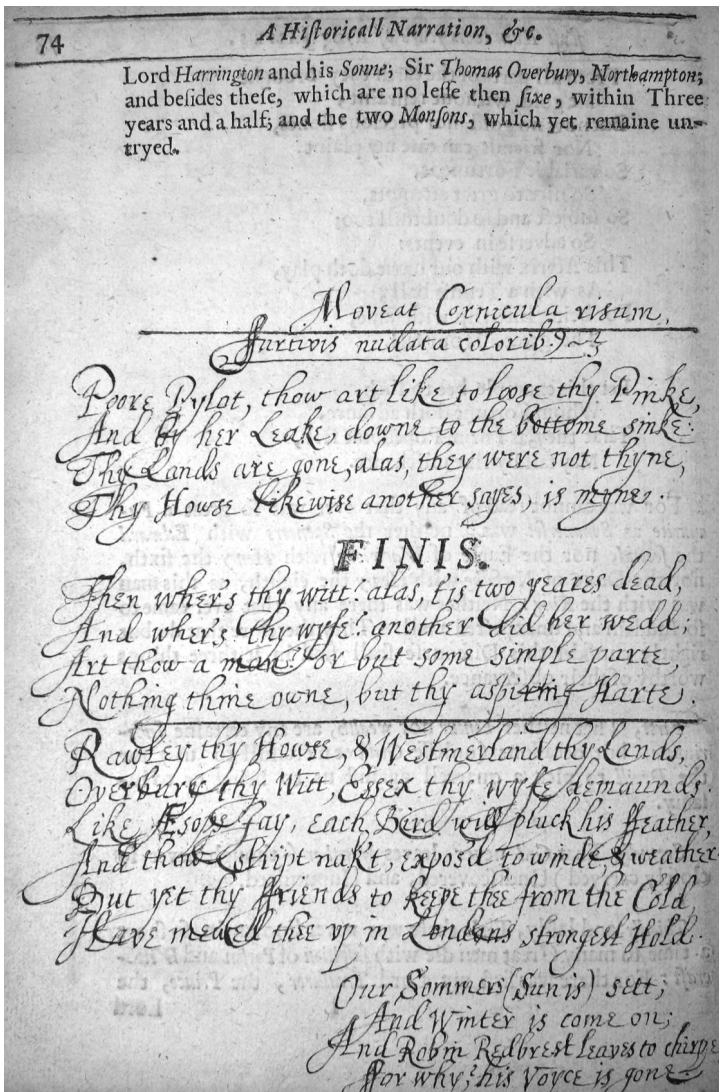 74
A Historicall Narration, &c.
Lord Harrington and his Sonne; Sir Thomas Overbury, Northampton;
and besides these, which are no lesse then sixe, within Three
years and a half; and the two Monsons, which yet remaine un-
tryed.
Moveat Cornicula risum,
Furtivis nudata colorib9
Poore Pylot, thow art like to loose thy Pinke,
And by her Leake, downe to the bottome sinke:
Thy Lands are gone, alas, they were not thyne,
Thy Howse likewise another sayes, is myne.
FINIS.
Then wher's thy witt? alas, t'is two yeares dead,
And wher's thy wyfe? another did her wedd;
Art thow a man? or but some simple parte,
Nothing thine owne, but thy aspiring Harte.
Rawley thy Howse, & Westmerland thy Lands,
Overbury thy Witt, Essex thy wyfe demaunds.
Like Æsops Jay, each Bird will pluck his ffeather,
And thow stript nak't, expos'd to winde & weather.
But yet thy ffriends to keepe thee from the Cold,
Have mewed thee up in Londons strongest Hold.
Our Sommers (Sun is) sett;
And Winter is come on;
And Robin Redbrest leaves to chirpe
ffor why? his Voyce is gone